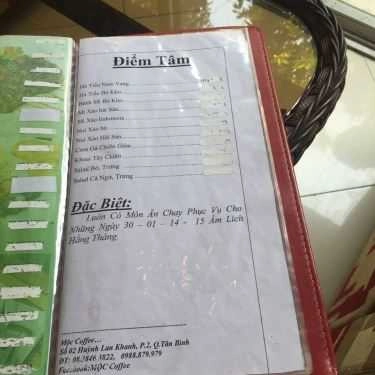 Điểm Tâm
Hủ Tiếu Nam Vang
Hủ Tiếu Bò Kho
Bánh Mì Bò Kho
Mì Xào
Mì Xào Indomein
Nui Xào Bò
Nui Xào Hải Sản
Cơm Gà Chiên
Khoai Tây Chiên
Salad Bò, Trứng
Salad Cá Ngừ, Trứng
Đặc Biệt:
Luôn Có Món Ăn Chay Phục Vụ Cho
Những Ngày 30 – 01 – 14 - 15 Âm Lịch
Hằng Tháng.
Mộc Coffee…
Số 02 Huỳnh Lan Khanh, P.2, Q.Tân Bình
ĐT: 08.3846.3822, 0988.879.979
Facebook:MỘC Coffee